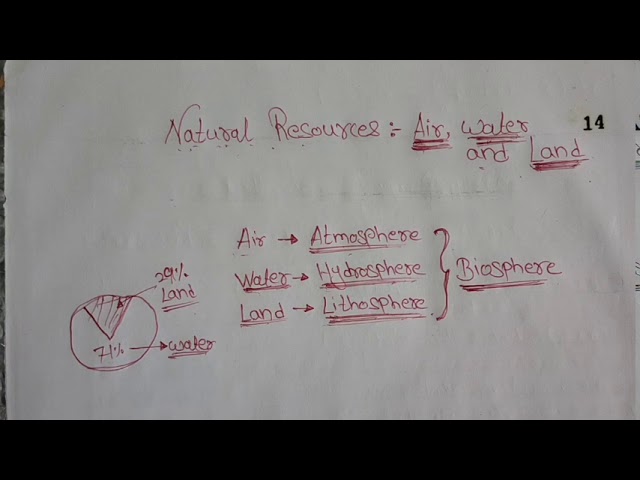 Natural Resources:- Air, water
and Land
14
Air → Atmosphere
Water → Hydrosphere
Land → Lithosphere
Biosphere
29%
Land
71% → water